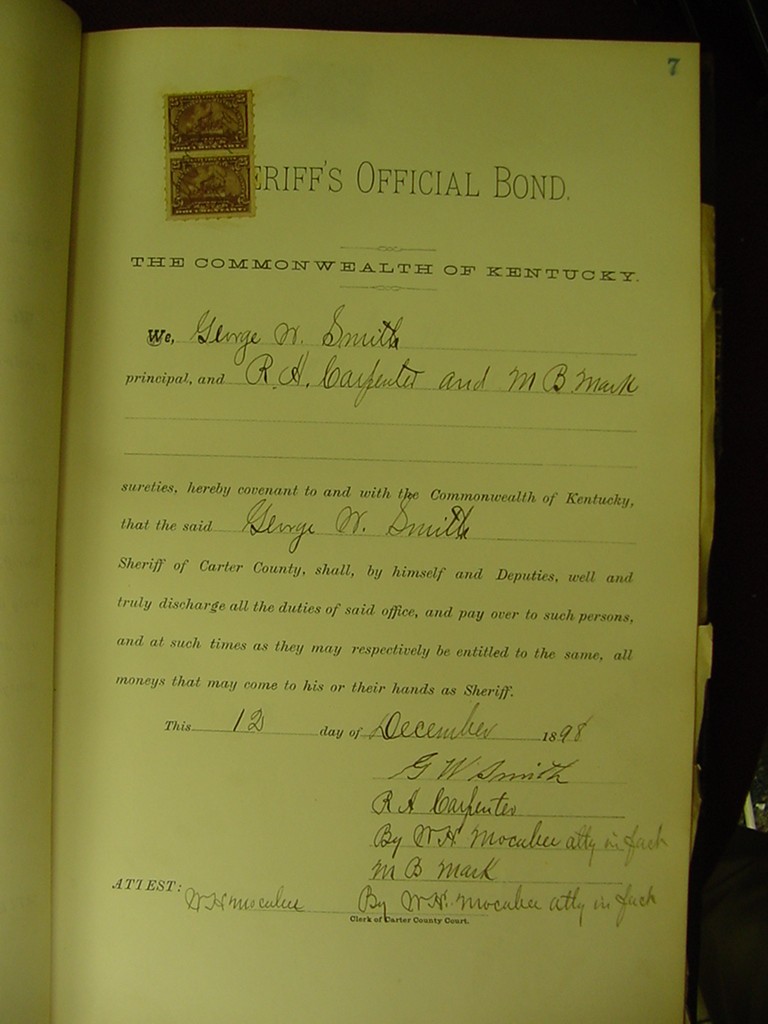 7
ERIFF'S OFFICIAL BOND.
THE COMMONWEALTH OF KENTUCKY.
We, George W. Smith
principal, and R. A. Carpenter and M B Mark
sureties, hereby covenant to and with the Commonwealth of Kentucky,
that the said George W. Smith
Sheriff of Carter County, shall, by himself and Deputies, well and
truly discharge all the duties of said office, and pay over to such persons,
and at such times as they may respectively be entitled to the same, all
moneys that may come to his or their hands as Sheriff.
This 12 day of December 1898
G W Smith
R A Carpenter
By W H Mocabee atty in fact
M B Mark
ATTEST: W H Mocabee By W. H. Mocabee atty in fact
Clerk of Carter County Court.